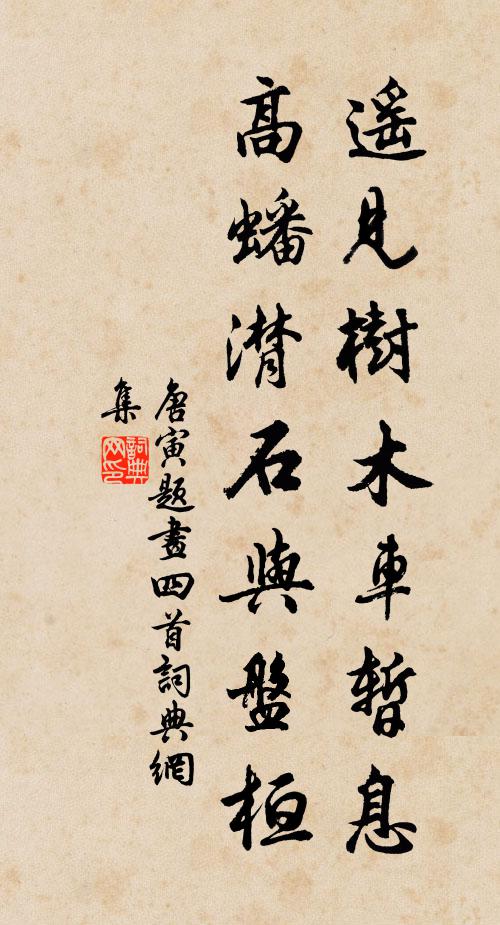 遥見樹木車暫息
高蟠潸石與盤桓
唐寅題畫四首詞典網
集
詞典
网印